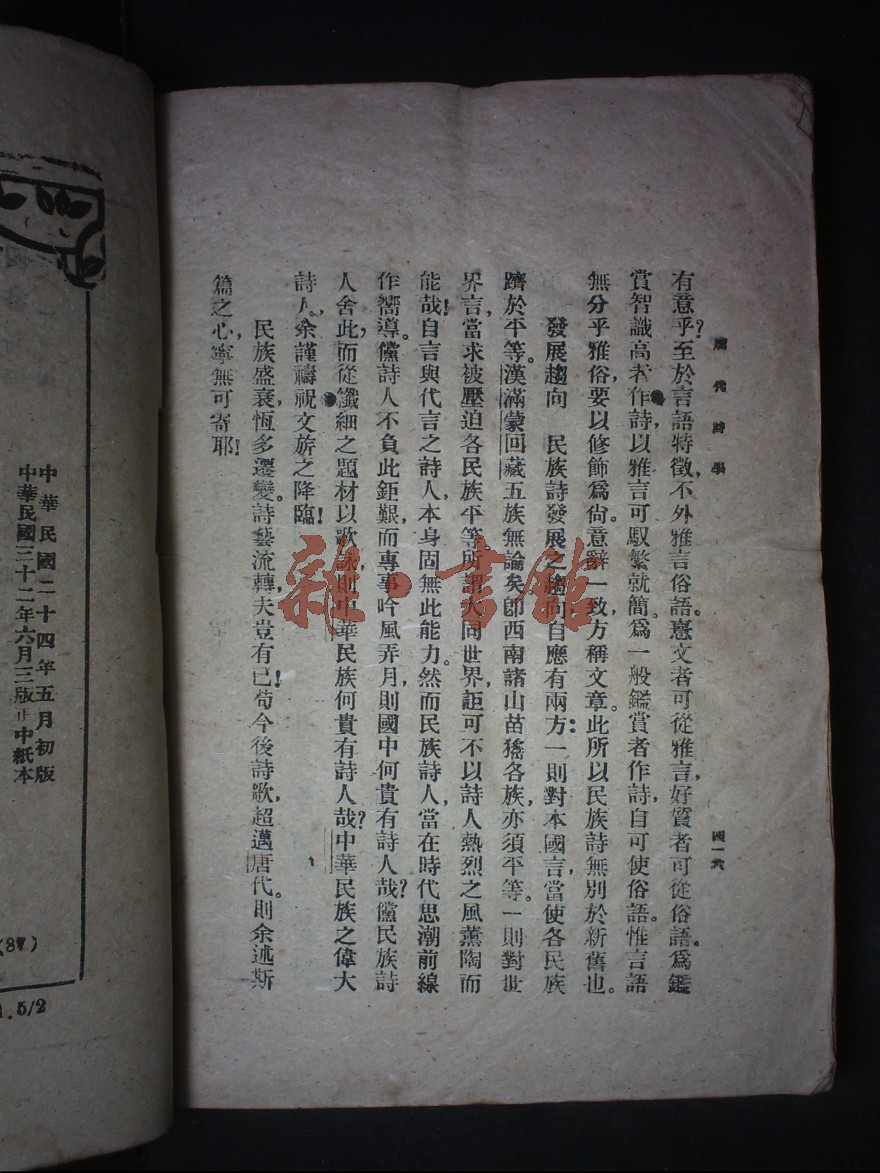 唐代詩學
四一六
有意乎?至於言語特徵,不外雅言俗語。憙文者可從雅言,好質者可從俗語。爲鑑
賞智識高者作詩,以雅言可馭繁就簡。爲一般鑑賞者作詩,自可使俗語。惟言語
無分乎雅俗,要以修飾爲尙。意辭一致,方稱文章。此所以民族詩無別於新舊也。
發展趨向 民族詩發展之趨向,自應有兩方:一則對本國言,當使各民族
躋於平等。漢滿蒙回藏五族無論矣,卽西南諸山苗猺各族,亦須平等。一則對世
界言,當求被壓迫各民族平等。所謂大同世界,詎可不以詩人熱烈之風薰陶而
能哉!自言與代言之詩人,本身固無此能力。然而民族詩人,當在時代思潮前線
作嚮導。儻詩人不負此鉅艱,而專事吟風弄月,則國中何貴有詩人哉?儻民族詩
人舍此,而從纖細之題材以歌詠,則中華民族何貴有詩人哉?中華民族之偉大
詩人,余謹禱祝文旂之降臨!
民族盛衰,恆多遷變。詩藝流轉,夫豈有已!苟今後詩歌,超邁唐代。則余述斯
篇之心,寧無可寄耶!
中華民國二十四年五月初版
中華民國三十二年六月三版 中紙本
(87)
1.5/2
雜·書館